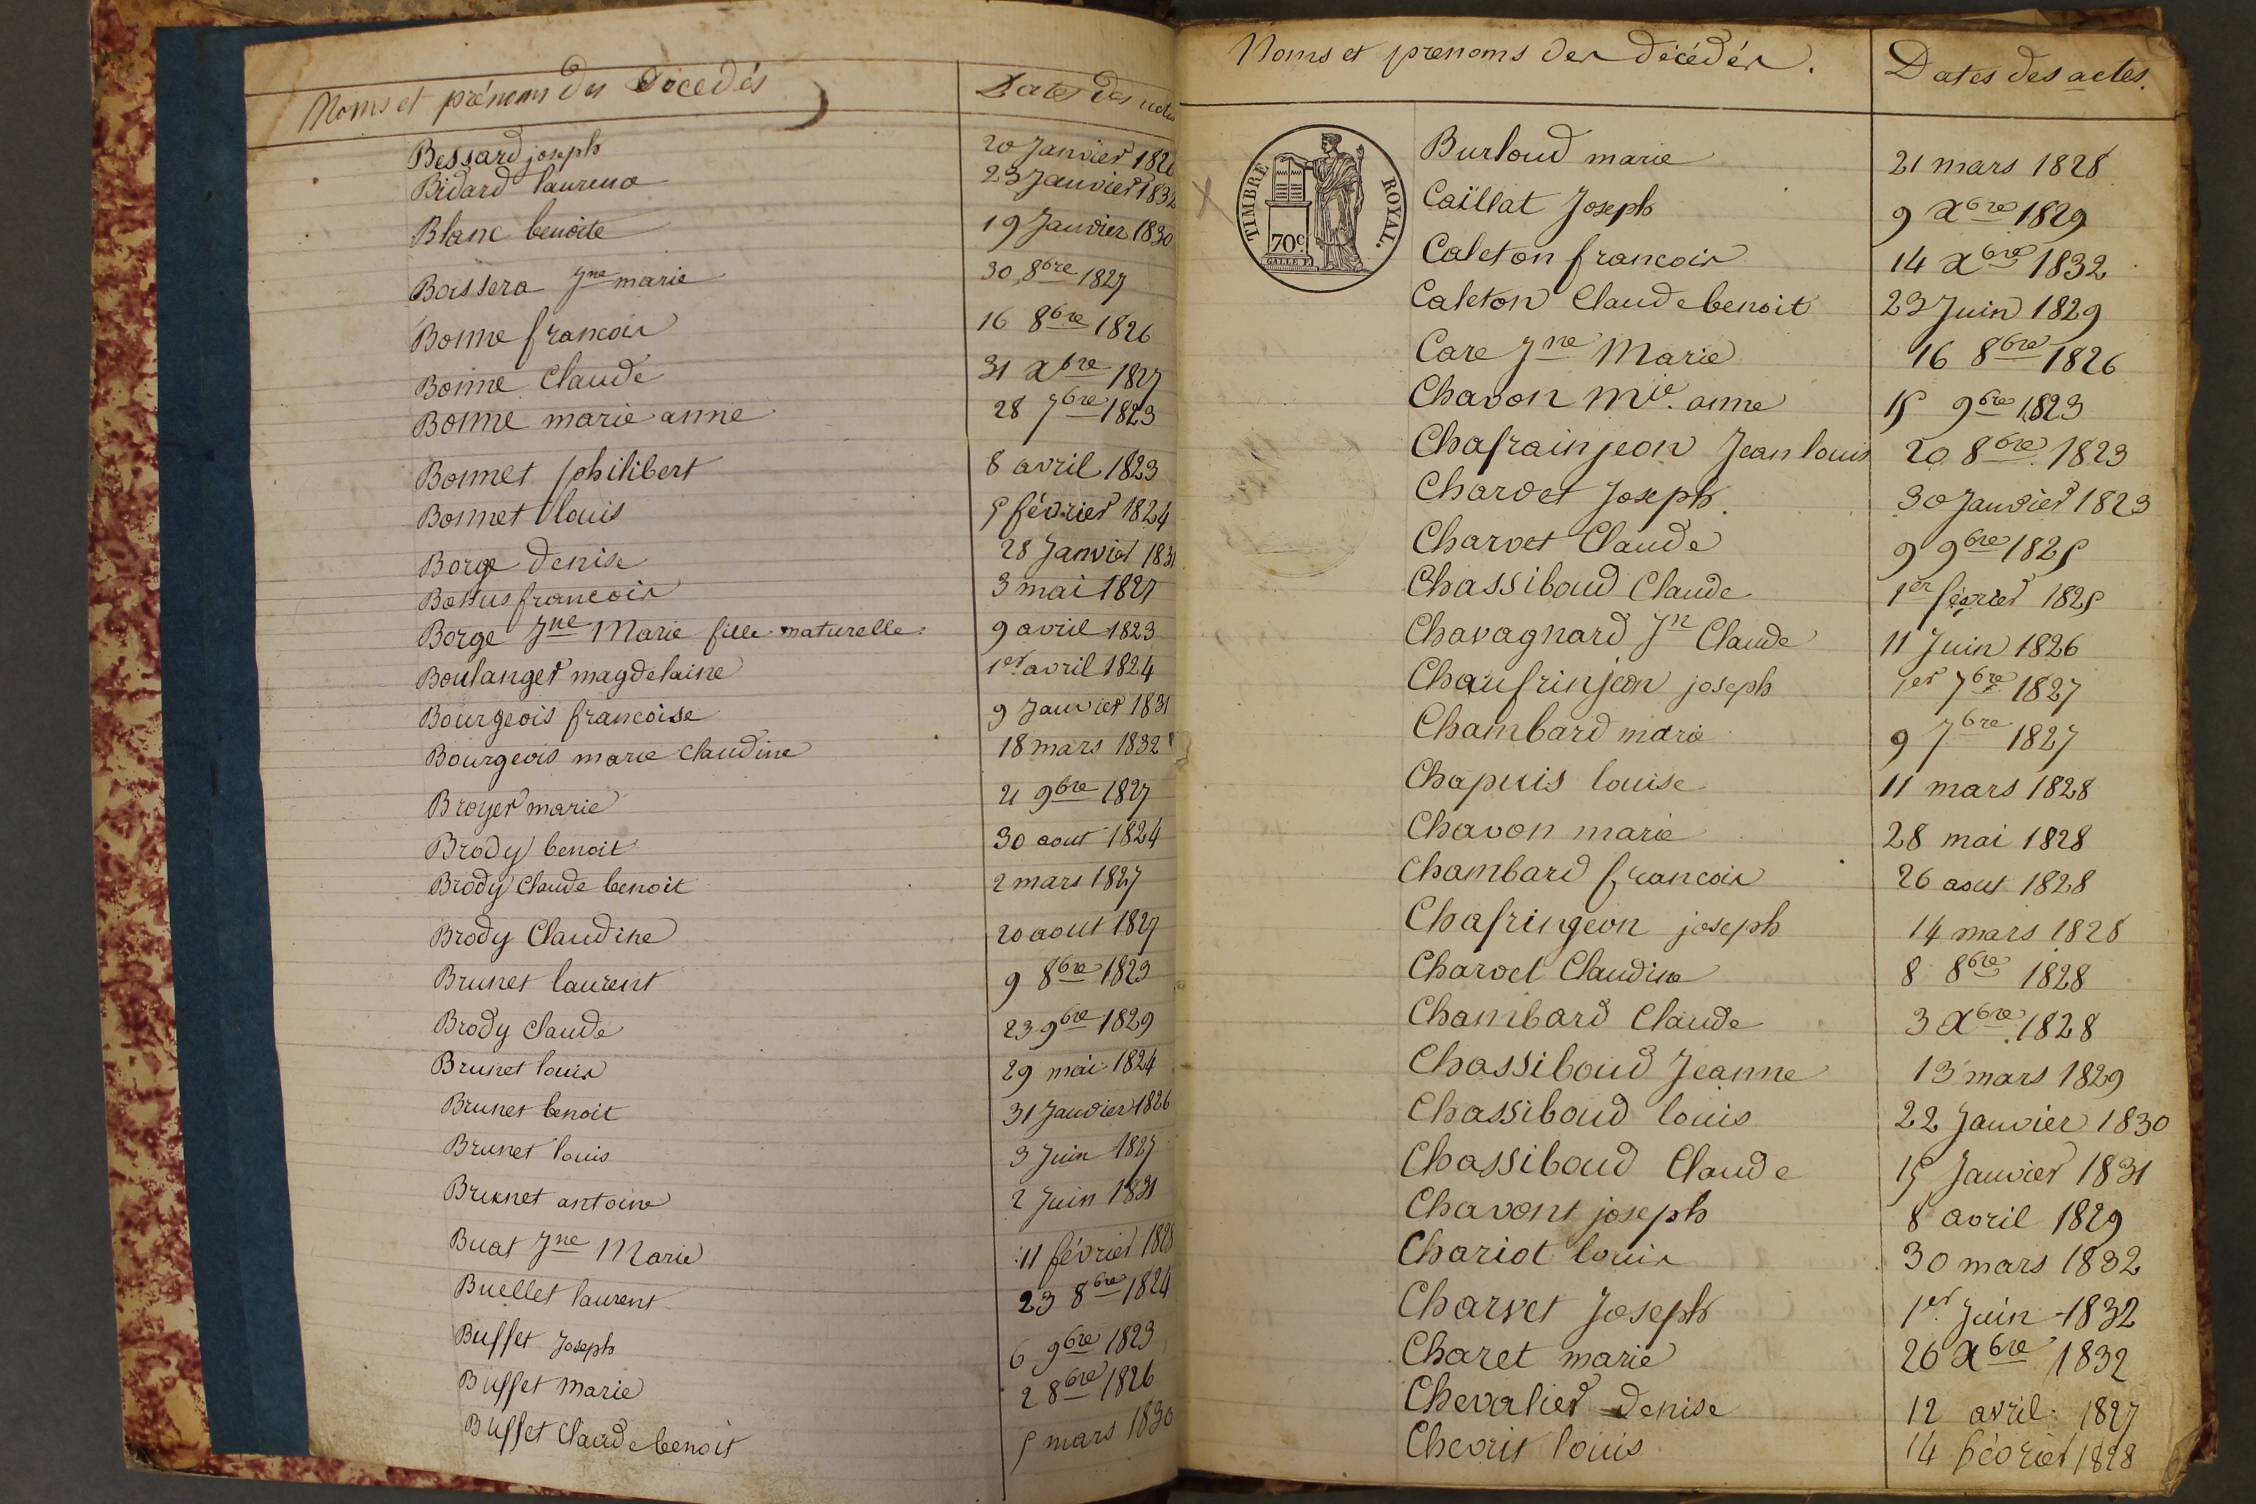 Noms et prénoms des Décedés
Dates des actes
Bessard joseph 20 Janvier 182
Bidard laurent 23 Janvier 1832
Blanc benoite 19 Janvier 1830
Jne marie 30 8bre 1827
Bonne francois 16 8bre 1826
Bonne Claude 31 Xbre 1827
Bonne marie anne 28 7bre 1823
Bonnet philibert 8 avril 1823
Bonnet louis 5 février 1824
Borge denise 28 Janvier 1831
francois 3 mai 1827
Borge Jne Marie fille naturelle 9 avril 1823
Boulanger magdelaine 1er avril 1824
Bourgeois francoise 9 Janvier 1831
Bourgeois marie Claudine 18 mars 1832
Broyer marie 21 9bre 1827
Brody benoit 30 aout 1824
Brody Claude benoit 2 mars 1827
Brody Claudine 20 aout 1827
Brunet laurent 9 8bre 1823
Brody Claude 23 9bre 1829
Brunet louis 29 mai 1824
Brunet benoit 31 Janvier 1826
Brunet louis 3 Juin 1827
Brunet antoine 2 Juin 1831
Buat Jne Marie 11 février 1828
Buellet laurent 23 8bre 1824
Buffet Joseph 6 9bre 1823
Buffet Marie 2 8bre 1826
Buffet Claude benoit 5 mars 1830
Noms et prenoms des décédés.
Dates des actes.
TIMBRE ROYAL.
70c
Burloud marie 21 mars 1828
Caïllat Joseph 9 Xbre 1829
Caleton francois 14 Xbre 1832
Caleton Claude benoit 23 Juin 1829
Care Jne Marie 16 8bre 1826
Chavon Mie. anne 15 9bre 1823
Chafrainjeon Jean louis 20 8bre 1823
Charvet Joseph. 30 Janvier 1823
Charvet Claude 9 9bre 1825
Chassiboud Claude 1er février 1825
Chavagnard Jn Claude 11 Juin 1826
Chaufrinjeon joseph 1er 7bre 1827
Chambard marie 9 7bre 1827
Chapuis louise 11 mars 1828
Chavon marie 28 mai 1828
Chambard francois 26 aout 1828
Chafringeon joseph 14 mars 1828
Charvet Claudine 8 8bre 1828
Chambard Claude 3 Xbre 1828
Chassiboud Jeanne 13 mars 1829
Chassiboud louis 22 Janvier 1830
Chassiboud Claude 15 Janvier 1831
Chavont joseph 8 avril 1829
Chariot louis 30 mars 1832
Charvet Joseph 1er Juin 1832
Charet marie 26 Xbre 1832
Chevalier Denise 12 avril 1827
Chevrit louis 14 février 1828